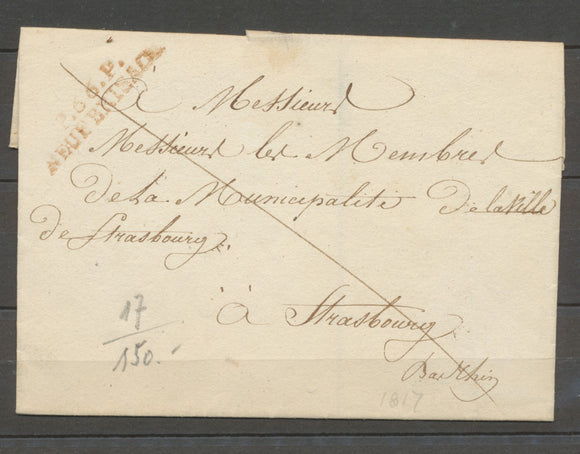 P.66.P.
NEUF BRISACK
à Messieurs
Messieurs les Membres
de la Municipalité de la ville
de Strasbourg.
à Strasbourg.
Bas Rhin
17
150.-
1817